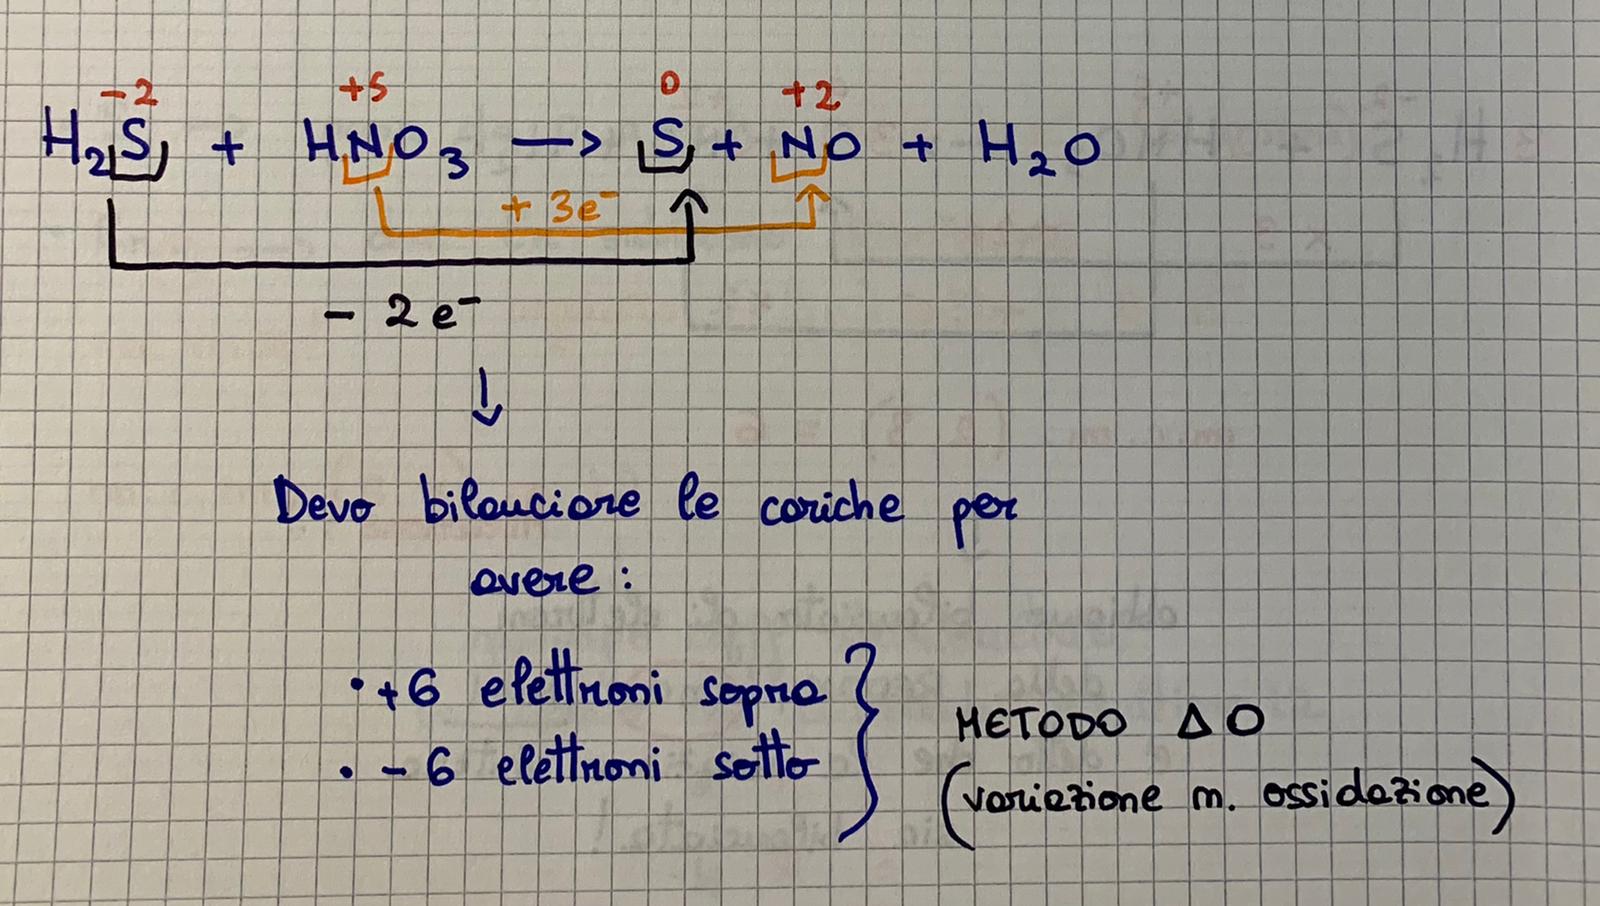 -2 +5 0 +2
H₂S + HNO₃ —> S + NO + H₂O
+ 3e⁻
- 2e⁻
↓
Devo bilanciare le cariche per
avere :
• +6 elettroni sopra
• - 6 elettroni sotto
METODO Δ O
(variazione n. ossidazione)